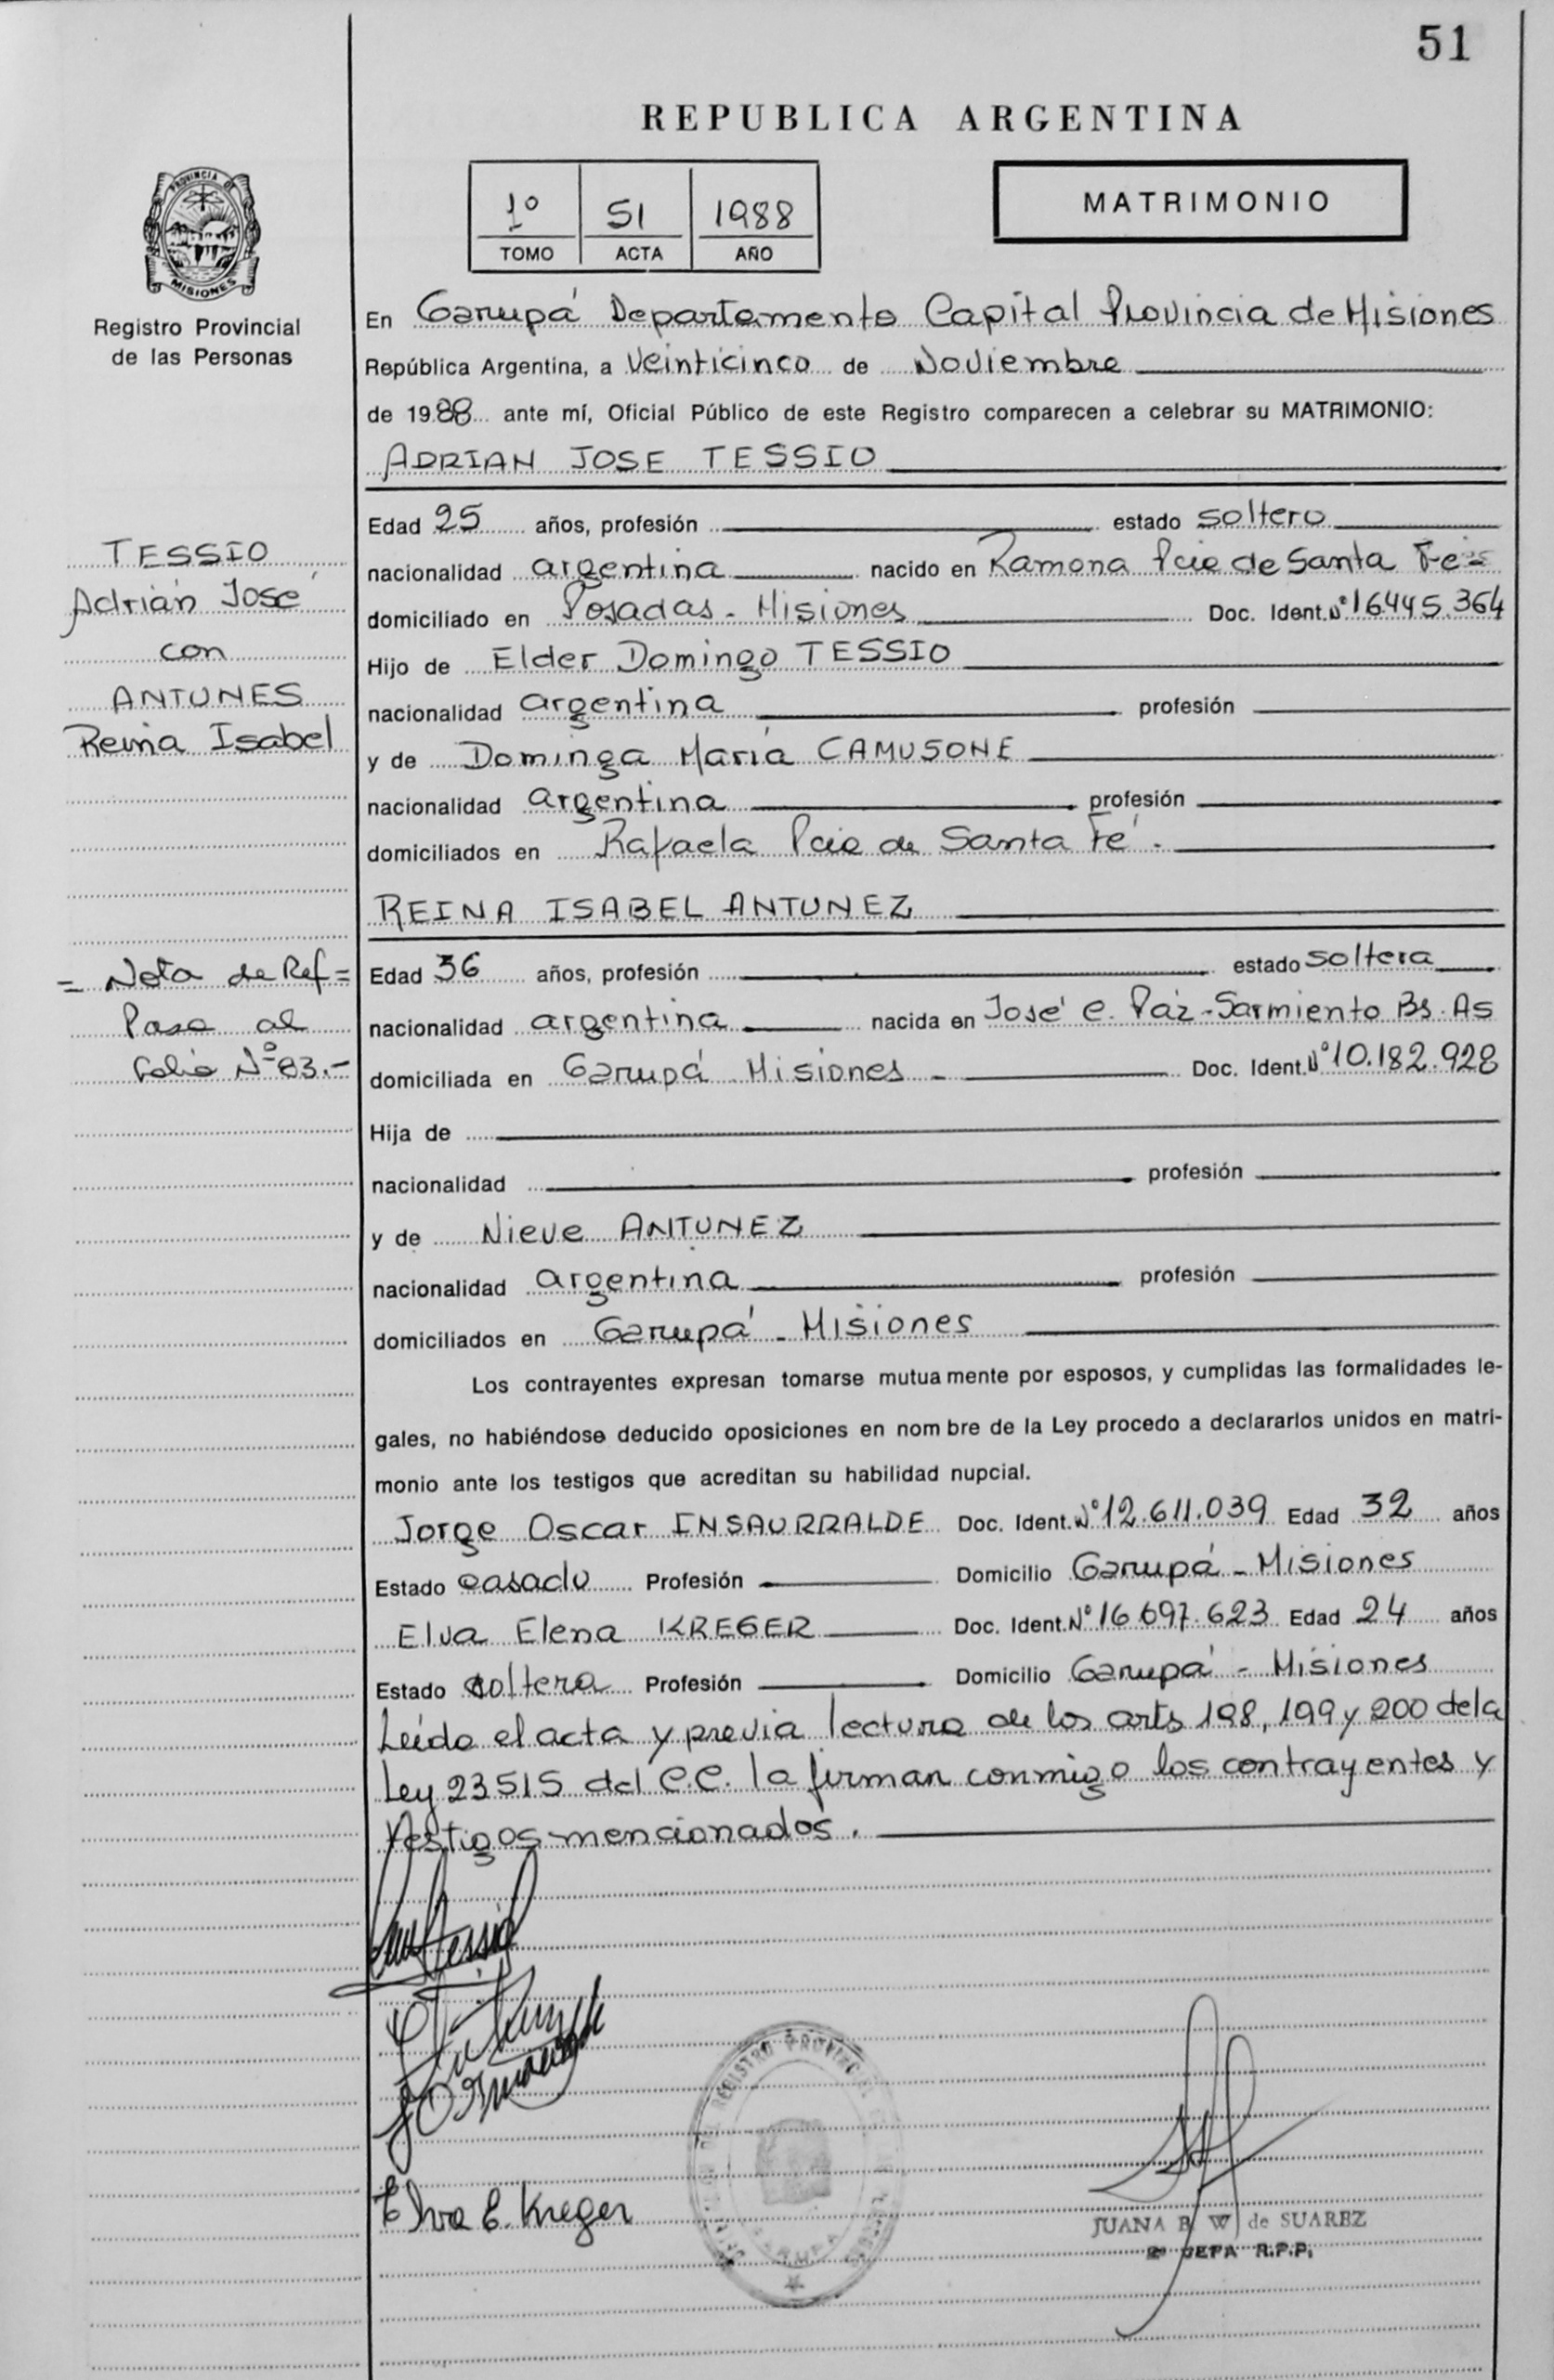 51
REPUBLICA ARGENTINA
1º 51 1988
TOMO ACTA AÑO
MATRIMONIO
PROVINCIA DE
MISIONES
Registro Provincial
de las Personas
En Garupá Departamento Capital Provincia de Misiones
República Argentina, a Veinticinco de Noviembre
de 1988 ante mí, Oficial Público de este Registro comparecen a celebrar su MATRIMONIO:
ADRIAN JOSE TESSIO
TESSIO
Adrián José
con
ANTUNES
Reina Isabel
Edad 25 años, profesión estado soltero
nacionalidad argentina nacido en Ramona Pcia de Santa Fé
domiciliado en Posadas - Misiones Doc. Ident. Nº 16.445.364
Hijo de Elder Domingo TESSIO
nacionalidad argentina profesión
y de Dominga María CAMUSONE
nacionalidad argentina profesión
domiciliados en Rafaela Pcia de Santa Fé.
REINA ISABEL ANTUNEZ
= Nota de Ref =
Pasa al
folio Nº 83.-
Edad 36 años, profesión estado soltera
nacionalidad argentina nacida en José C. Paz - Sarmiento Bs. As
domiciliada en Garupá - Misiones - Doc. Ident. Nº 10.182.928
Hija de
nacionalidad profesión
y de Nieve ANTUNEZ
nacionalidad argentina profesión
domiciliados en Garupá - Misiones
Los contrayentes expresan tomarse mutuamente por esposos, y cumplidas las formalidades le-
gales, no habiéndose deducido oposiciones en nombre de la Ley procedo a declararlos unidos en matri-
monio ante los testigos que acreditan su habilidad nupcial.
Jorge Oscar INSAURRALDE Doc. Ident. Nº 12.611.039 Edad 32 años
Estado casado Profesión Domicilio Garupá - Misiones
Elva Elena KREGER Doc. Ident. Nº 16.697.623 Edad 24 años
Estado soltera Profesión Domicilio Garupá - Misiones
Leída el acta y previa lectura de los arts 198, 199 y 200 de la
Ley 23515 del C.C. la firman conmigo los contrayentes y
testigos mencionados.
Elva E. Kreger
REGISTRO PROVINCIAL
GARUPA
JUANA B. W. de SUAREZ
JEFA R.P.P.